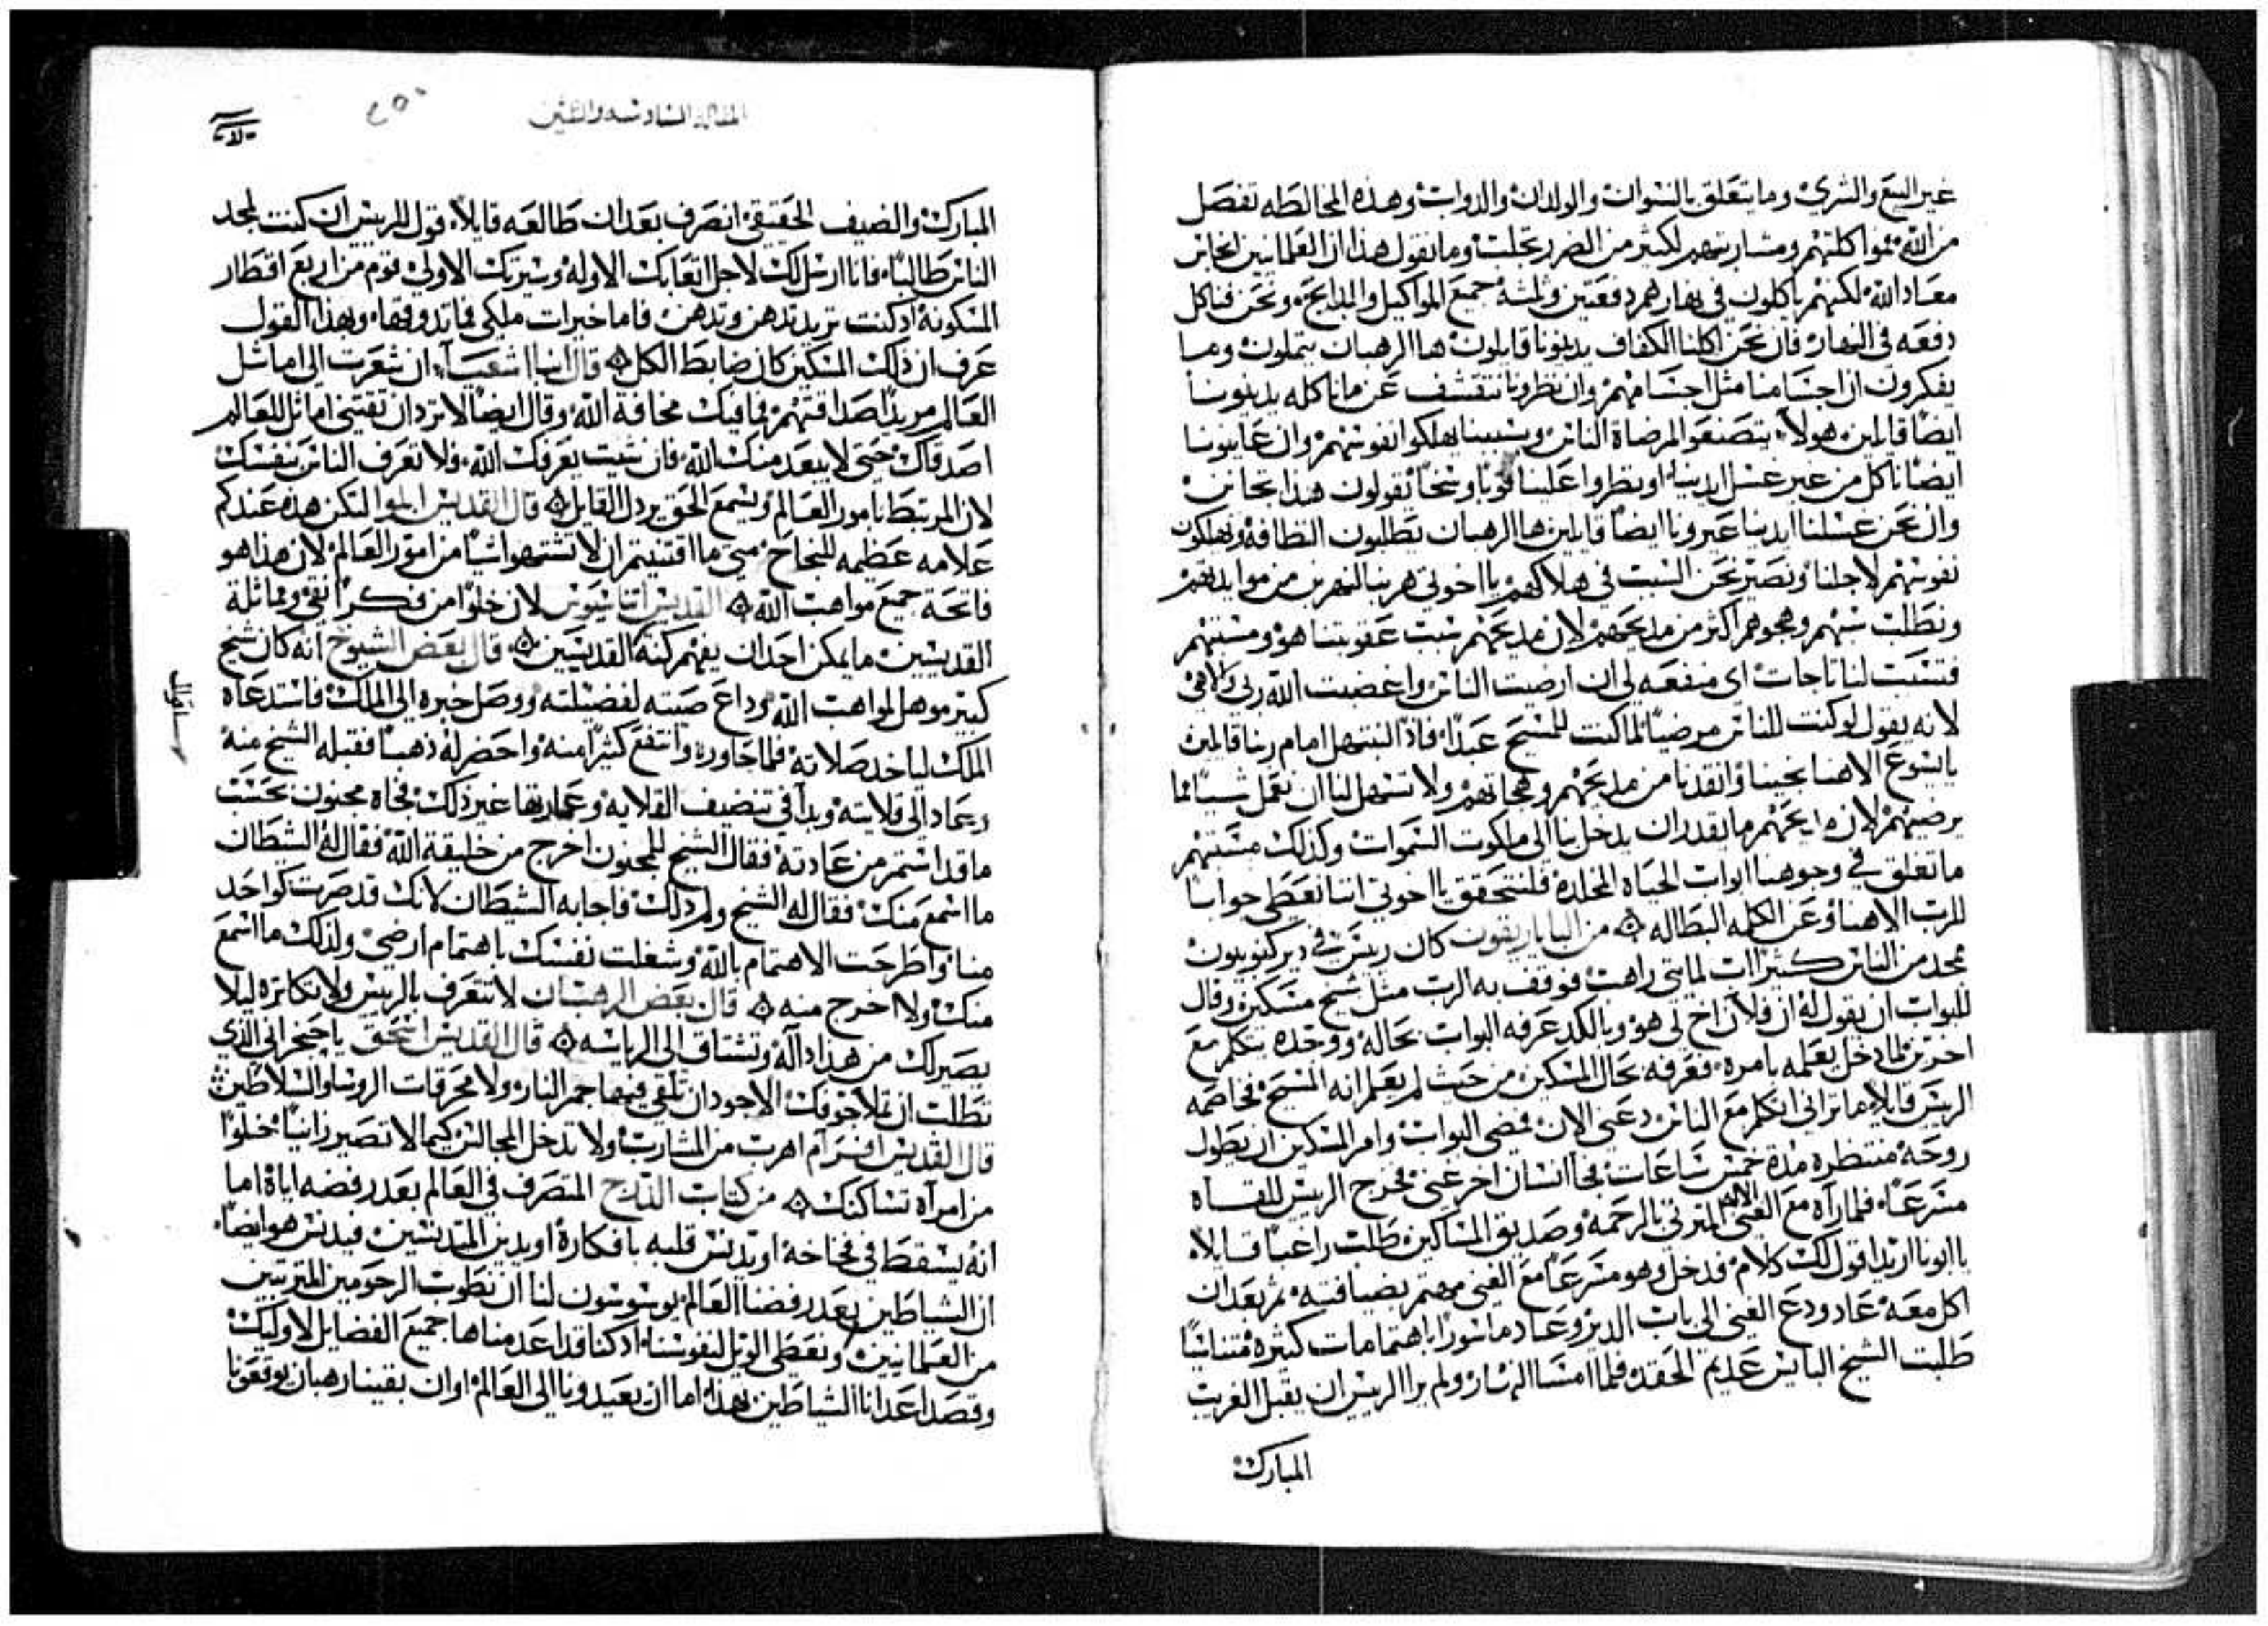 غير البيع والشري وما يتعلق بالنسوان والولدان والدواب وهذه المخالطه تفصل
من الله بمواكلتهم ومشاربتهم لكثير من الضرر تجلب وما نقول هذا ان العلمانيين انجاس
معاد الله لكنهم ياكلون في نهارهم دفعتين وثلثه جميع المواكيل والمدابحة ونحن فناكل
دفعه في النهار فان نحن اكلنا الكفاف يدينونا قايلون ها الرهبان يتملون وما
يفكرون ان اجسامنا مثل اجسامهم وان نظرونا نتقشف عن ما ناكله يدينونا
ايضًا قايلين هولاء يتصنعوا لمرضاة الناس وبسببنا يهلكوا نفوسهم وان عاينونا
ايضًا ناكل من غير غسل ايدينا او نظروا علينا ثوبًا وسخًا يقولون هذا نجاس
وان نحن غسلنا ايدينا عيرونا ايضًا قايلين ها الرهبان يطلبون النظافه ويهلكون
نفوسهم لاجلنا ونصير نحن السبب في هلاكهم يا اخوتي هربنا لنهربن من موايدهم
ونطلب سبهم وهجوهم اكثر من مديحهم لان مديحهم سبب عقوبتنا هو ومسبتهم
فتسبب لنا تاجات اى منفعه لي ان ارضيت الناس واغضبت الله ربي والاهي
لانه يقول لو كنت للناس مرضيًا لما كنت للمسيح عبدًا فاذًا لنبتهل امام ربنا قايلين
يا يسوع الاهنا نجينا وانقدنا من مديحهم وهجاتهم ولا تسهل لنا ان نعمل شيئًا مما
يرضيهم لان مديحهم ما تقدر ان يدخل بنا الى ملكوت السموات وكذلك مسبتهم
ما تغلق في وجوهنا ابواب الحياه المخلده فلنتحقق يا اخوتي اننا نعطي جوابًا
للرب الاهنا وعن الكلمه البطاله ۞ من البابا ريقون كان ريس في دير كينوبيون
ممجد من الناس كثيرات لمايتي راهب فوقف به الرب مثل شيخ مسكين وقال
للبواب ان يقول له ان فلان اخ لي هو وبالكد عرفه البواب بحاله ووجده يتكلم مع
اخرين لما دخل يعلمه بامره فعرفه بحال المسكين من حيث لم يعلم انه المسيح فخاصمه
الريس قايلًا ما تراني اتكلم مع الناس دعني الان فمضى البواب وامر المسكين ان يطول
روحه منتظره مدة خمس ساعات فجا انسان اخر غني فخرج الريس للقـاه
مسرعًا فلما رآه مع الغني الاله المتري بالرحمه وصديق المساكين طلب راغبًا قـايلًا
يا ابونا اريد اقول لك كلام فدخل وهو مسرعًا مع الغني مهتم بضيافته ثم بعد ان
اكل معه عاد ودع الغني الى باب الدير وعاد ماسورًا باهتمامات كثيره متناسيًا
طلبت الشيخ البايس عديم الحقد فلما امسا النهار ولم يرا الريس ان يقبل الغريب
المبارك
المقاله السادسه والستين
٢٥٠
المبارك والضيف الحقيقي انصرف بعد ان طالعه قايلًا قول للريس ان كنت لمجد
الناس طالبًا فانا ارسل لك لاجل اتعابك الاوله وسيرتك الاولي قوم من اربع اقطار
المسكونه اد كنت تريد تدهن وتدهن فاما خيرات ملكي فما تدوقها وبهذا القول
عرف ان ذلك المسكين كان ضابط الكل ۞ قال انبا اشعيـا ان شعرت الى اماثل
العالم مريدًا لصداقتهم فما فيك مخافة الله وقال ايضًا لا ترد ان تقتني اماثل العالم
اصدقاك حتى لا يبعد منك الله فان شيت يعرفك الله فلا تعرف الناس بنفسك
لان المرتبط بامور العالم ويسمع الحق يردل القايل ۞ قال القديس ابلوا لتكن هذه عندكم
علامه عظيمه للنجاح متى ما اقتنيتم ان لا تشتهوا شيًا من امور العالم لان هذا هو
فاتحة جميع مواهب الله ۞ القديس اتناسيوس لان خلوًا من فكر نقي ومماثلة
القديسين ما يمكن احد ان يفهم كنه القديسين ۞ قال بعض الشيوخ انه كان شيخ
كبير موهل لمواهب الله وداع صيته لفضيلته ووصل خبره الى الملك فاستدعاه
الملك لياخد صلاته فلما حاوره وانتفع كثيرًا منه واحضر له ذهبًا فقبله الشيخ منه
وعاد الى قلايته وبدآ في تنضيف القلايه وعمارتها غير ذلك فجاه مجنون بحسب
ما قد استمر من عادته فقال الشيخ للمجنون اخرج من خليقة الله فقال له الشيطان
ما اسمع منك فقال له الشيخ ولم ذلك فاجابه الشيطان لانك قد صرت كواحد
منا واطرحت الاهتمام بالله وشغلت نفسك باهتمام ارضي ولذلك ما اسمع
منك ولا اخرج منه ۞ قال بعض الرهبان لا تتعرف بالريس ولا تكاتره ليلا
يصير لك من هذا داله وتشتاق الى الرياسه ۞ قال القديس اسحق يا حنجراني الذي
تطلب ان تملا جوفك الاجود ان تلقي فيها جمر النار ولا محرقات الروسا والسلاطين
قال القديس افرآم اهرب من المشارب ولا تدخل المجالس كيما لا تصير زانيًا خلوًا
من امرآه تساكنك ۞ من كتاب الدرج المتصرف في العالم بعد رفضه اياه اما
انه يسقط في فخاخه او يدنس قلبه بافكاره او يدين المتدنسين فيدنس هو ايضًا
ان الشياطين بعد رفضنا العالم يوسوسون لنا ان نطوب الرحومين المتربيين
من العلمانيين ونعطي الويل لنفوسنا اد كنا قد اعدمناها جميع الفضايل لاوليك
وقصد اعدانا الشياطين بهذا اما ان يعيدونا الى العالم او ان بقينا رهبان يوقعونا